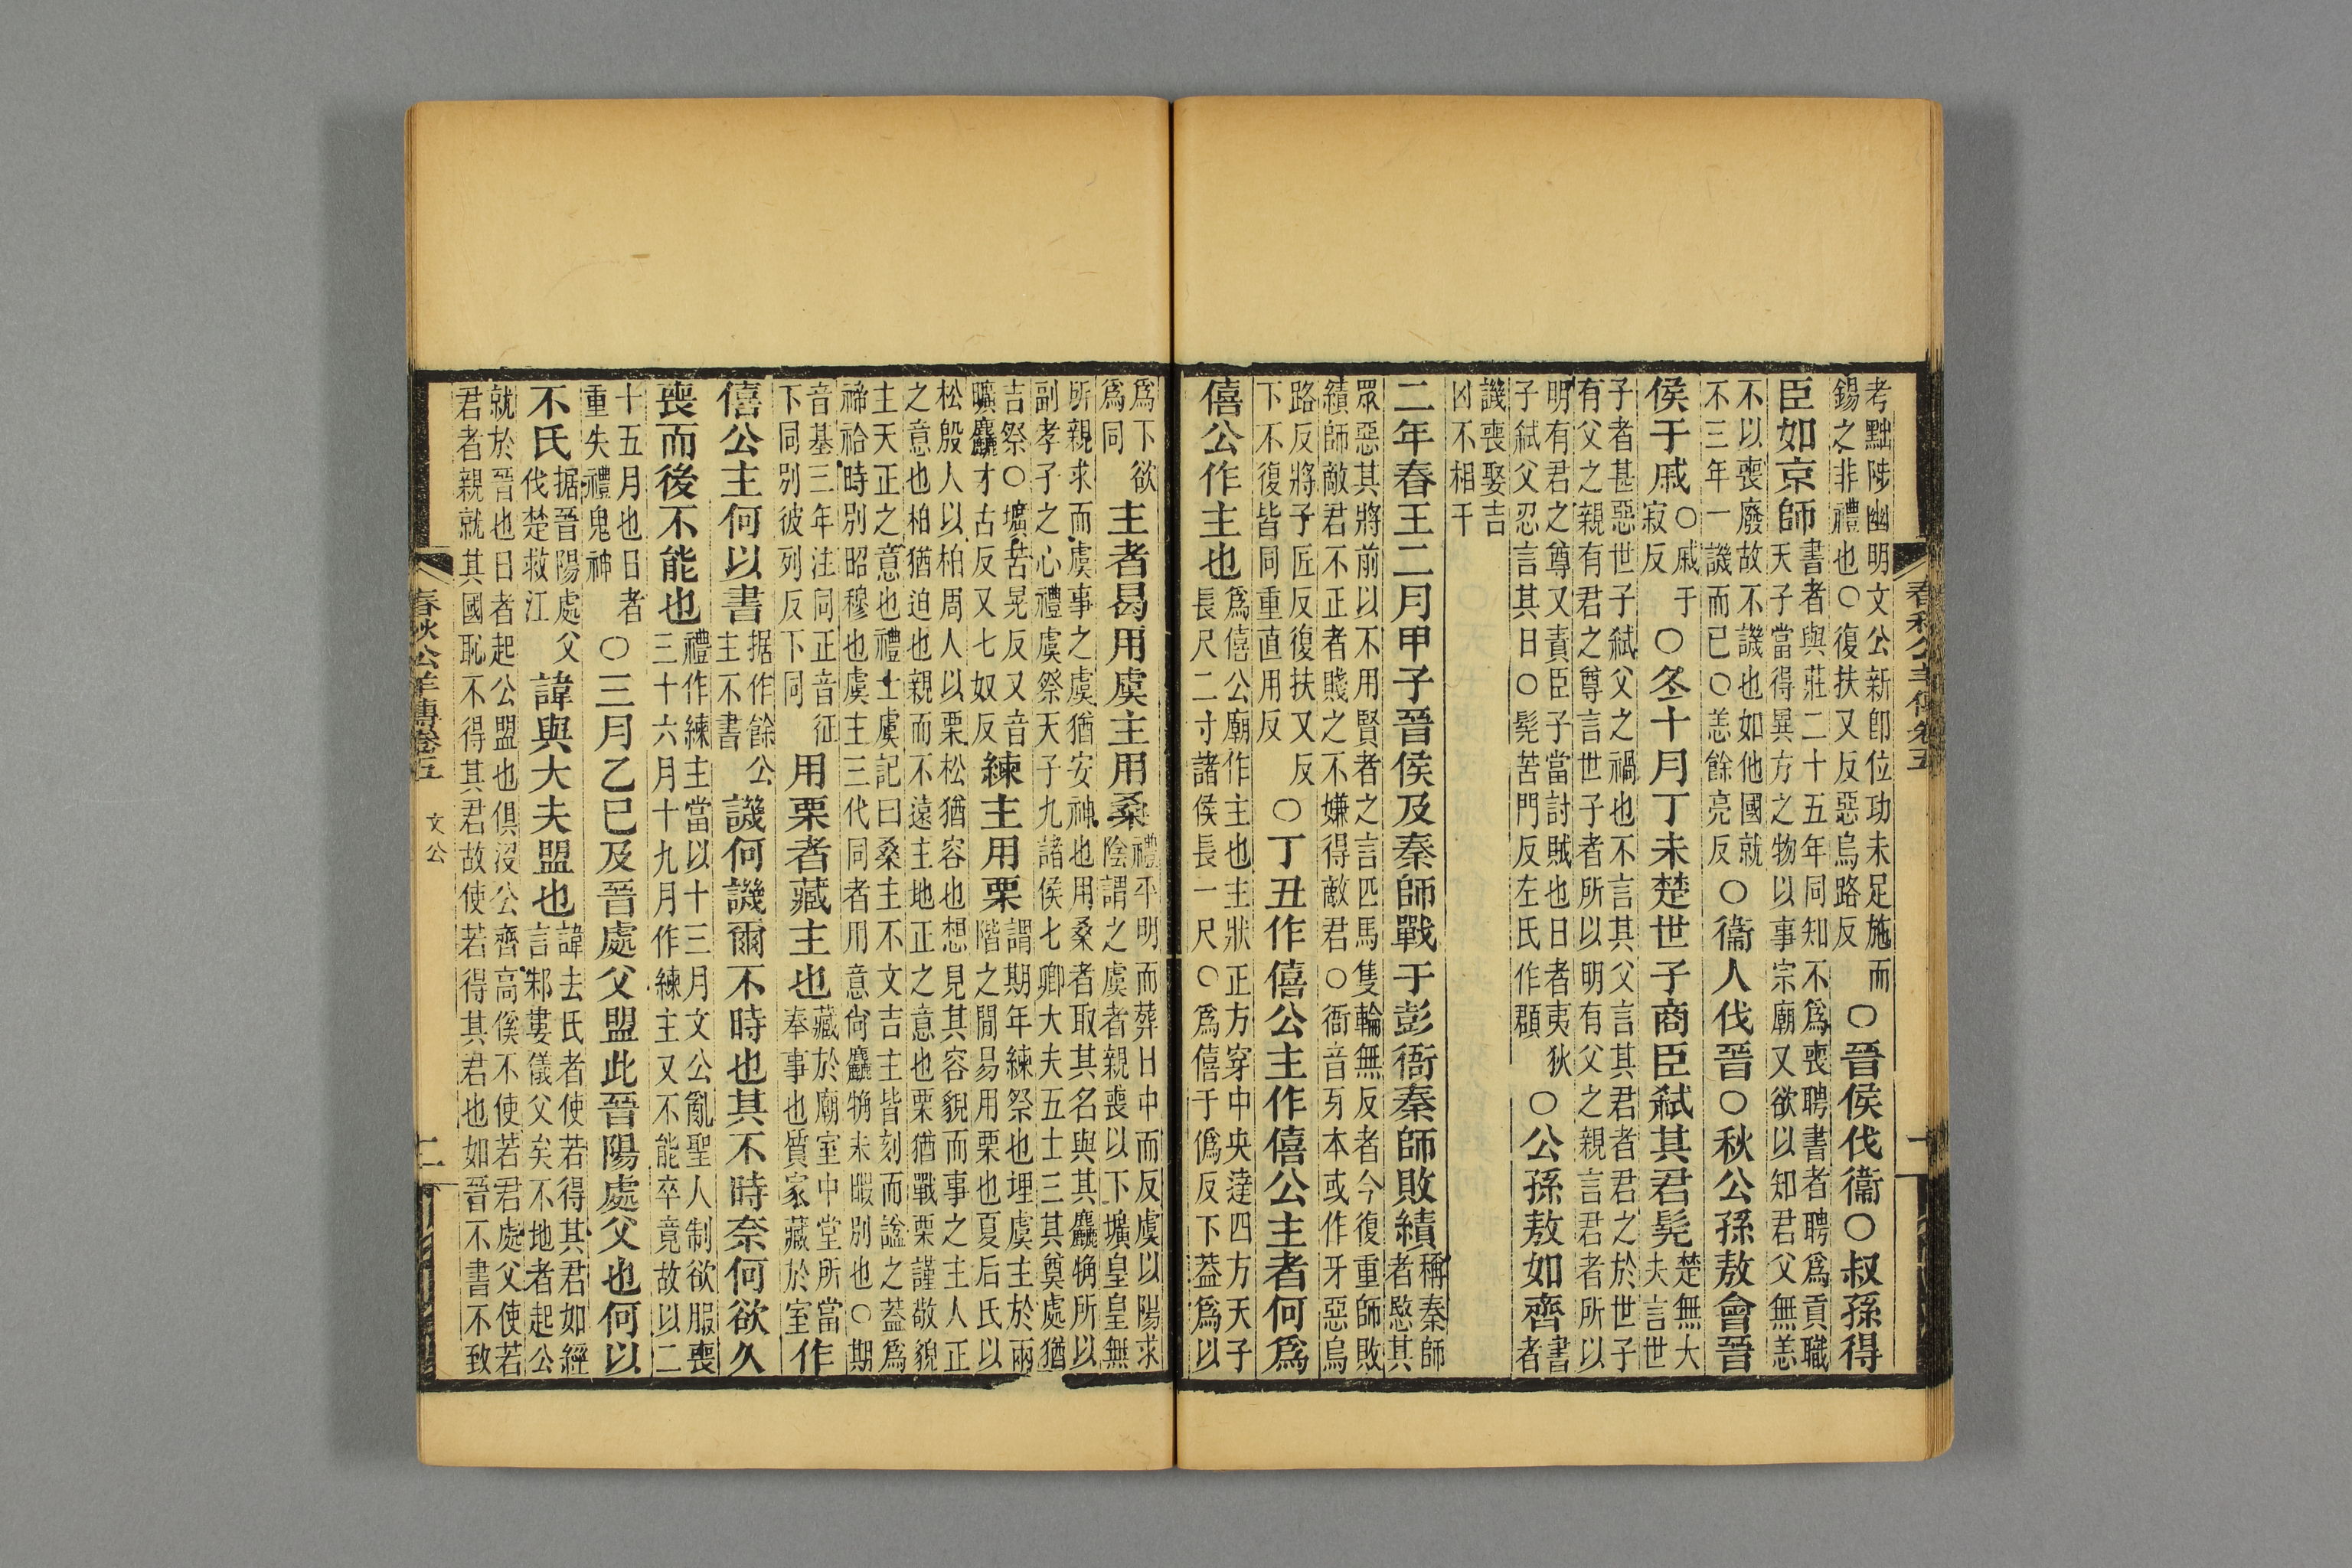 春秋公羊傳卷五
考黜陟幽明文公新卽位功未足施而
錫之非禮也○復扶又反惡烏路反
○晉侯伐衞○叔孫得
臣如京師
書者與莊二十五年同知不爲喪聘書者聘爲貢職
天子當得異方之物以事宗廟又欲以知君父無恙
不以喪廢故不譏也如他國就
不三年一譏而已○恙餘亮反
○衞人伐晉○秋公孫敖會晉
侯于戚
○戚于
寂反
○冬十月丁未楚世子商臣弒其君髡
楚無大
夫言世
子者甚惡世子弒父之禍也不言其父言其君者君之於世子
有父之親有君之尊言世子者所以明有父之親言君者所以
明有君之尊又責臣子當討賊也日者夷狄
子弒父忍言其日○髡苦門反左氏作頵
○公孫敖如齊
書
者
譏喪娶吉
凶不相干
二年春王二月甲子晉侯及秦師戰于彭衙秦師敗績
稱秦師
者愍其
眾惡其將前以不用賢者之言匹馬隻輪無反者今復重師敗
績師敵君不正者賤之不嫌得敵君○衙音牙本或作牙惡烏
路反將子匠反復扶又反
下不復皆同重直用反
○丁丑作僖公主作僖公主者何爲
僖公作主也
爲僖公廟作主也主狀正方穿中央達四方天子
長尺二寸諸侯長一尺○爲僖于僞反下葢爲以
爲下欲
爲同
主者曷用虞主用桑
禮平明而葬日中而反虞以陽求
陰謂之虞者親喪以下壙皇皇無
所親求而虞事之虞猶安神也用桑者取其名與其麤觕所以
副孝子之心禮虞祭天子九諸侯七卿大夫五士三其奠處猶
吉祭○壙苦晃反又音
曠麤才古反又七奴反
練主用栗
謂期年練祭也埋虞主於兩
階之閒易用栗也夏后氏以
松殷人以柏周人以栗松猶容也想見其容貌而事之主人正
之意也柏猶迫也親而不遠主地正之意也栗猶戰栗謹敬貌
主天正之意也禮士虞記曰桑主不文吉主皆刻而謚之葢爲
禘祫時別昭穆也虞主三代同者用意尙麤觕未暇別也○期
音基三年注同正音征
下同別彼列反下同
用栗者藏主也
藏於廟室中堂所當
奉事也質家藏於室
作
僖公主何以書
据作餘公
主不書
譏何譏爾不時也其不時奈何欲久
喪而後不能也
禮作練主當以十三月文公亂聖人制欲服喪
三十六月十九月作練主又不能卒竟故以二
十五月也日者
重失禮鬼神
○三月乙巳及晉處父盟此晉陽處父也何以
不氏
据晉陽處父
伐楚救江
諱與大夫盟也
諱去氏者使若得其君如經
言邾婁儀父矣不地者起公
就於晉也日者起公盟也俱沒公齊高傒不使若君處父使若
君者親就其國恥不得其君故使若得其君也如晉不書不致
春秋公羊傳卷五 文公 二